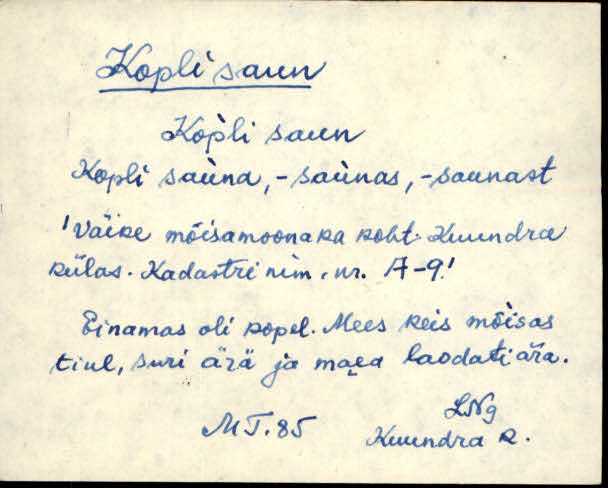 Kopli saun
Kop̀li saun
Kopli saùna, -saùnas, -saunast
'Väike mõisamoonaka koht Kuundra
külas. Kadastri nim. nr. A-9.'
Einamas oli kopel. Mees keis mõisas
tiul, suri ärä ja maea laodati ära.
LNg
MT.85
Kuundra k.